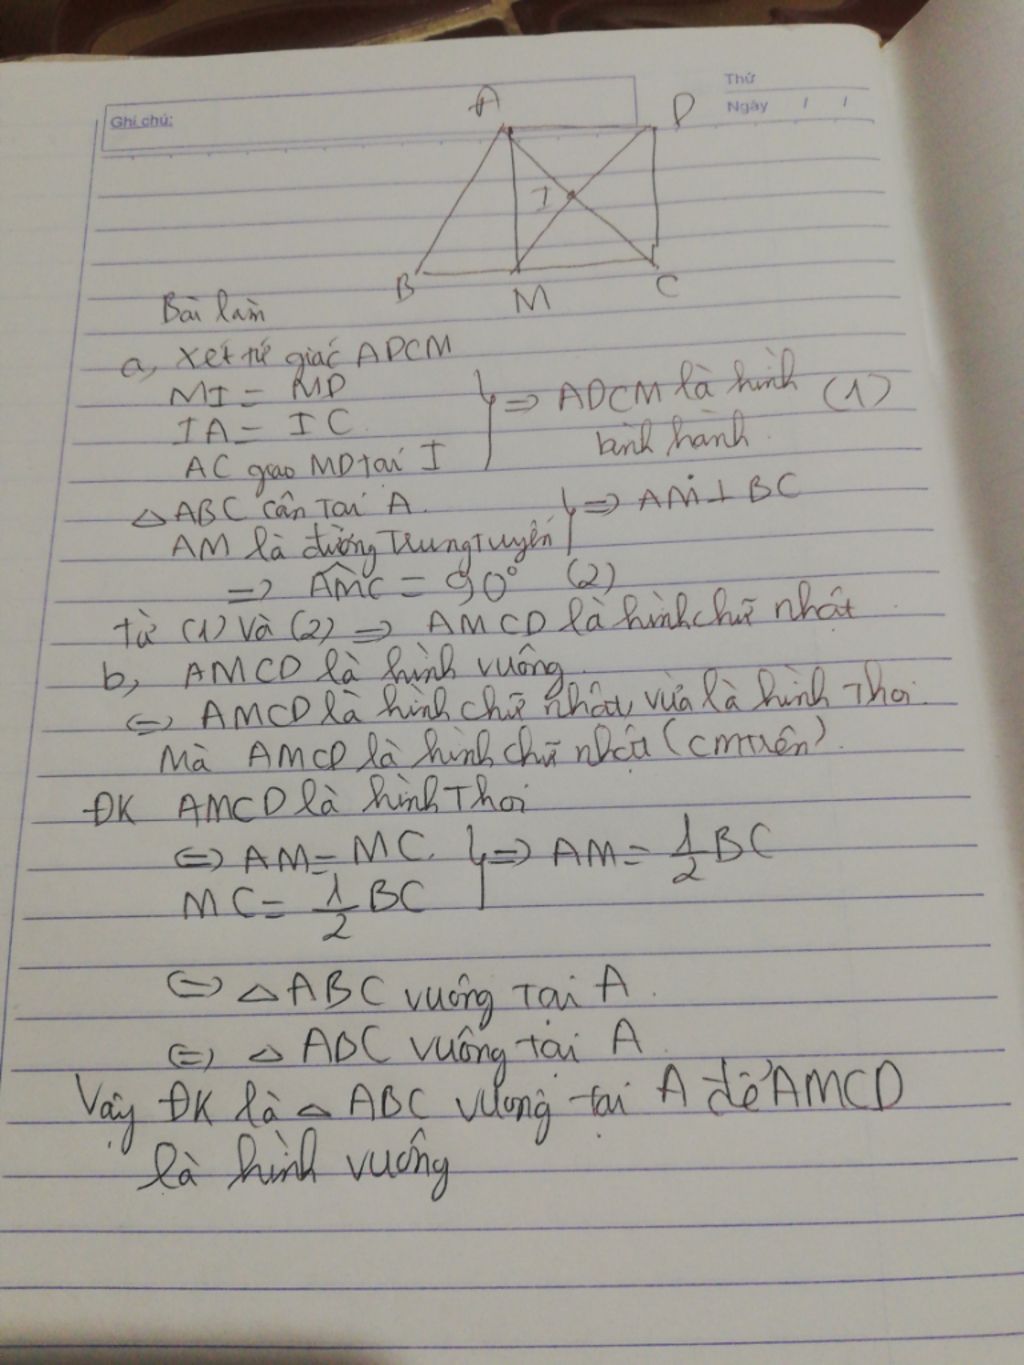 Ghi chú:
Thứ
Ngày / /
A D
I
B M C
Bài làm
a, Xét tứ giác ADCM
MI = MD
IA = IC
AC giao MD tại I
=> ADCM là hình (1)
bình hành.
△ABC cân tại A.
AM là đường Trung tuyến
=> AM ⊥ BC
=> AMC = 90° (2)
Từ (1) và (2) => AMCD là hình chữ nhật
b, AMCD là hình vuông.
<=> AMCD là hình chữ nhật, vừa là hình Thoi.
Mà AMCD là hình chữ nhật (CM trên).
ĐK AMCD là hình Thoi
<=> AM = MC. => AM = 1/2 BC
MC = 1/2 BC
<=> △ABC vuông tại A.
<=> △ABC vuông tại A
Vậy ĐK là △ABC vuông tại A để AMCD
là hình vuông